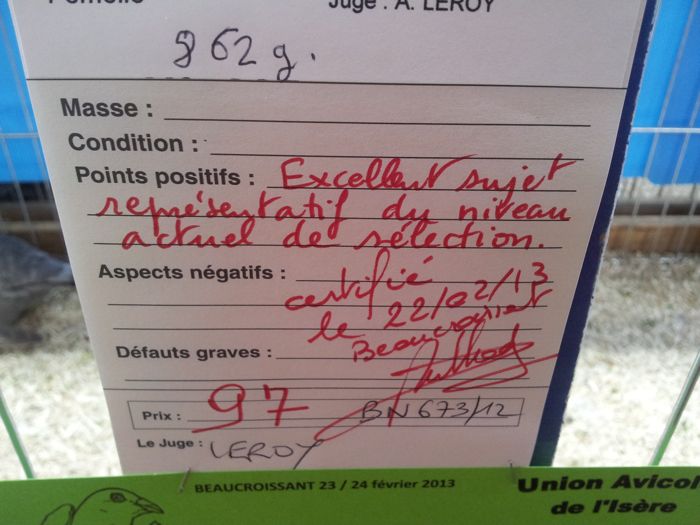 Juge : A. LEROY
862 g.
Masse :
Condition :
Points positifs : Excellent sujet
représentatif du niveau
actuel de sélection.
Aspects négatifs :
certifié
le 22/02/13
Beaucroissant
Défauts graves :
Prix : 97 BN673/12
Le Juge : LEROY
BEAUCROISSANT 23 / 24 février 2013
Union Avicol
de l'Isère